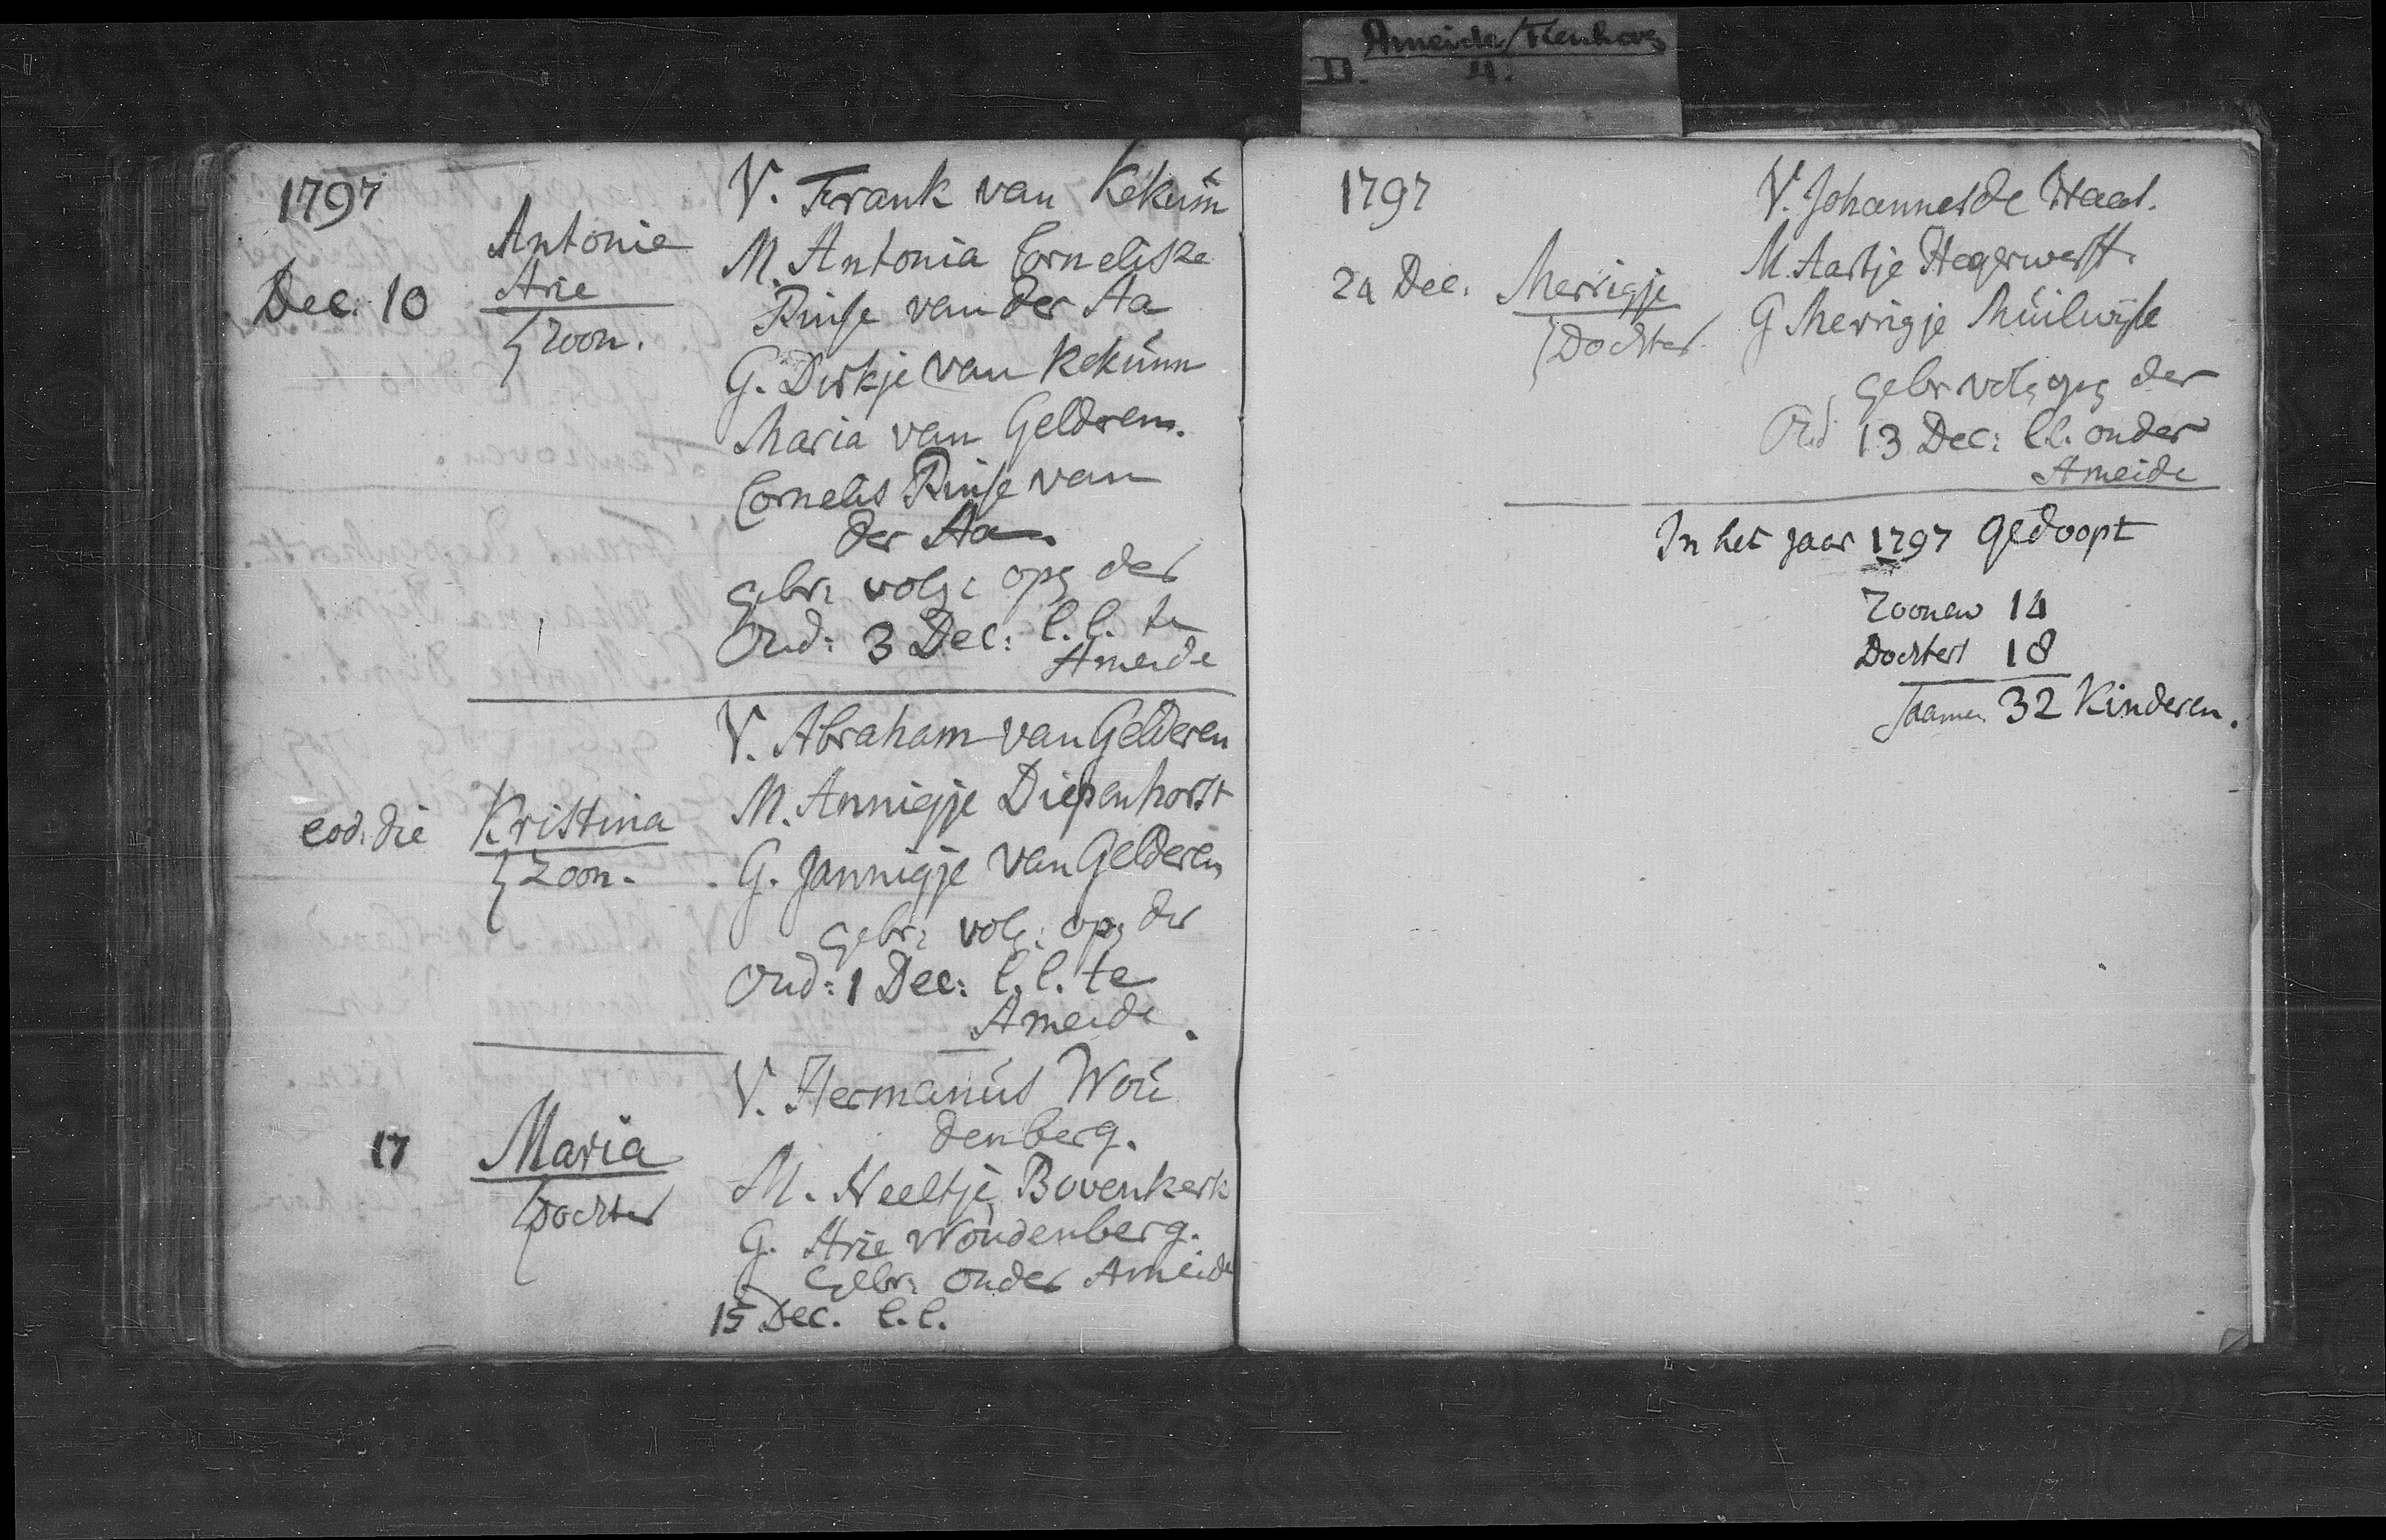 Ameide/Tienhoven
II. 4.
1797
Dec. 10
Antonie
Arie
Zoon.
V. Frank van Kekum
M. Antonia Corneliske
Rinse van der Aa
G. Dirkje van Kekum
Maria van Gelderen.
Cornelis Rinse van
der Aa.
gebr: volg: opg der
Oud: 3 Dec: l.l. te
Ameide
eod. die
Kristina
Zoon.
V. Abraham van Gelderen
M. Annigje Diepenhorst
G. Jannigje van Gelderen
gebr: volg: opg der
Oud: 1 Dec: l.l. te
Ameide.
17
Maria
Dochter
V. Hermanus Wou
denberg.
M. Neeltje Bovenkerk
G. Arie Woudenberg.
gebr: onder Ameide
15 Dec. l.l.
1797
24 Dec.
Merrigje
Dochter
V. Johannes de Haas.
M. Aartje Hogerwerff.
G Merrigje Muilwijk
gebr volg opg der
Oud 13 Dec: l.l. onder
Ameide
In het jaar 1797 gedoopt
Zoonen 14
Dochters 18
Saamen 32 Kinderen.